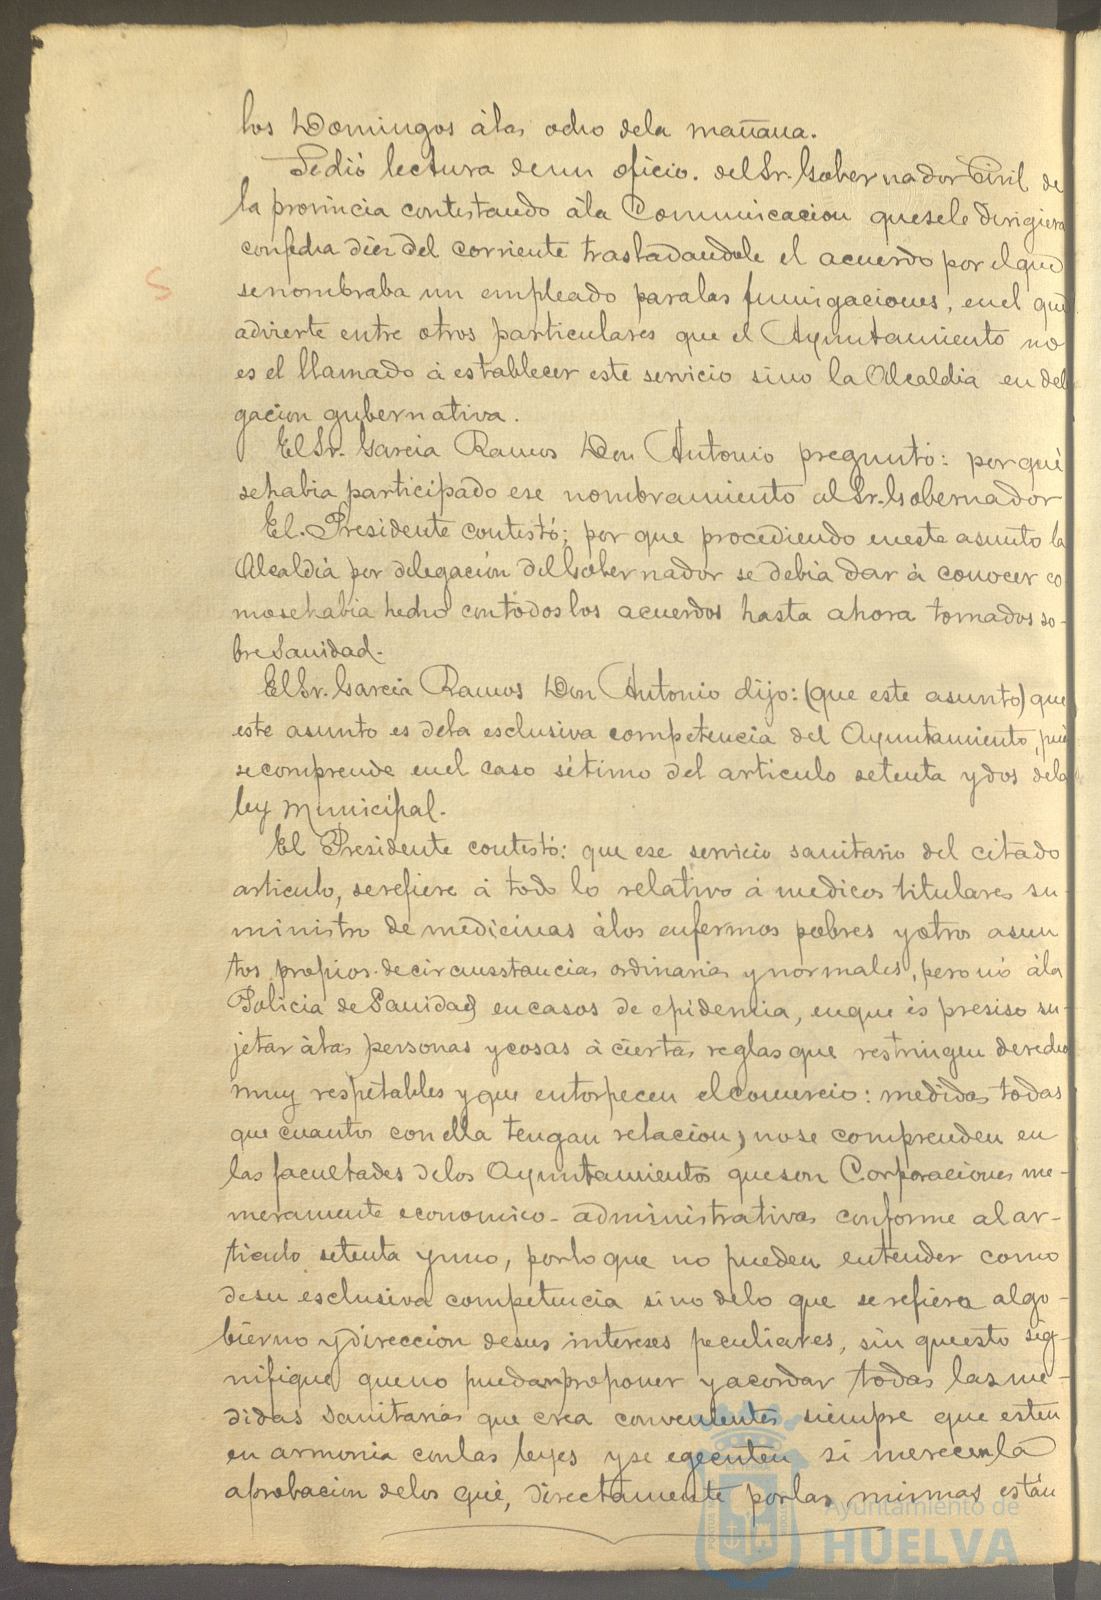 los Domingos á las ocho dela mañana.
Se dió lectura de un oficio. del Sr. Gobernador Civil de
la provincia contestando á la Comunicacion que sele dirigiera
con fecha diez del corriente trasladandole el acuerdo por el que
se nombraba un empleado para las fumigaciones, en el que
advierte entre otros particulares que el Ayuntamiento no
es el llamado á establecer este servicio sino la Alcaldia en dele
gacion gubernativa.
El Sr. Garcia Ramos Don Antonio preguntó: por qué
se habia participado ese nombramiento al Sr. Gobernador
El Presidente contestó; por que procediendo en este asunto la
Alcaldia por delegación del Gobernador se debia dar á conocer co
mo se habia hecho con todos los acuerdos hasta ahora tomados so-
bre Sanidad.
El Sr. Garcia Ramos Don Antonio dijo: (que este asunto) que
este asunto es dela esclusiva competencia del Ayuntamiento, pues
se comprende en el caso sétimo del articulo setenta y dos dela
ley Municipal.
El Presidente contestó: que ese servicio sanitario del citado
articulo, se refiere á todo lo relativo á medicos titulares su-
ministro de medicinas á los enfermos pobres y otros asun
tos propios de circunsstancias ordinarias y normales, pero nó á la
Policia de Sanidad en casos de epidemia, en que és presiso su-
jetar á las personas y cosas á ciertas reglas que restringen derechos
muy respetables y que entorpecen el comercio: medidas todas
que cuantos con ella tengan relacion, no se comprenden en
las facultades delos Ayuntamientos que son Corporaciones me-
meramente economico-administrativas conforme al ar-
ticulo setenta y uno, por lo que no pueden entender como
de su esclusiva competencia sino delo que se refiera al go-
bierno y dirección de sus intereses peculiares, sin que esto sig-
nifique que no puedan proponer y acordar todas las me-
didas sanitarias que crea convenientes siempre que esten
en armonia con las leyes y se egecuten si merecen la
aprobacion delos que, directamente por las mismas están
Ayuntamiento de
HUELVA